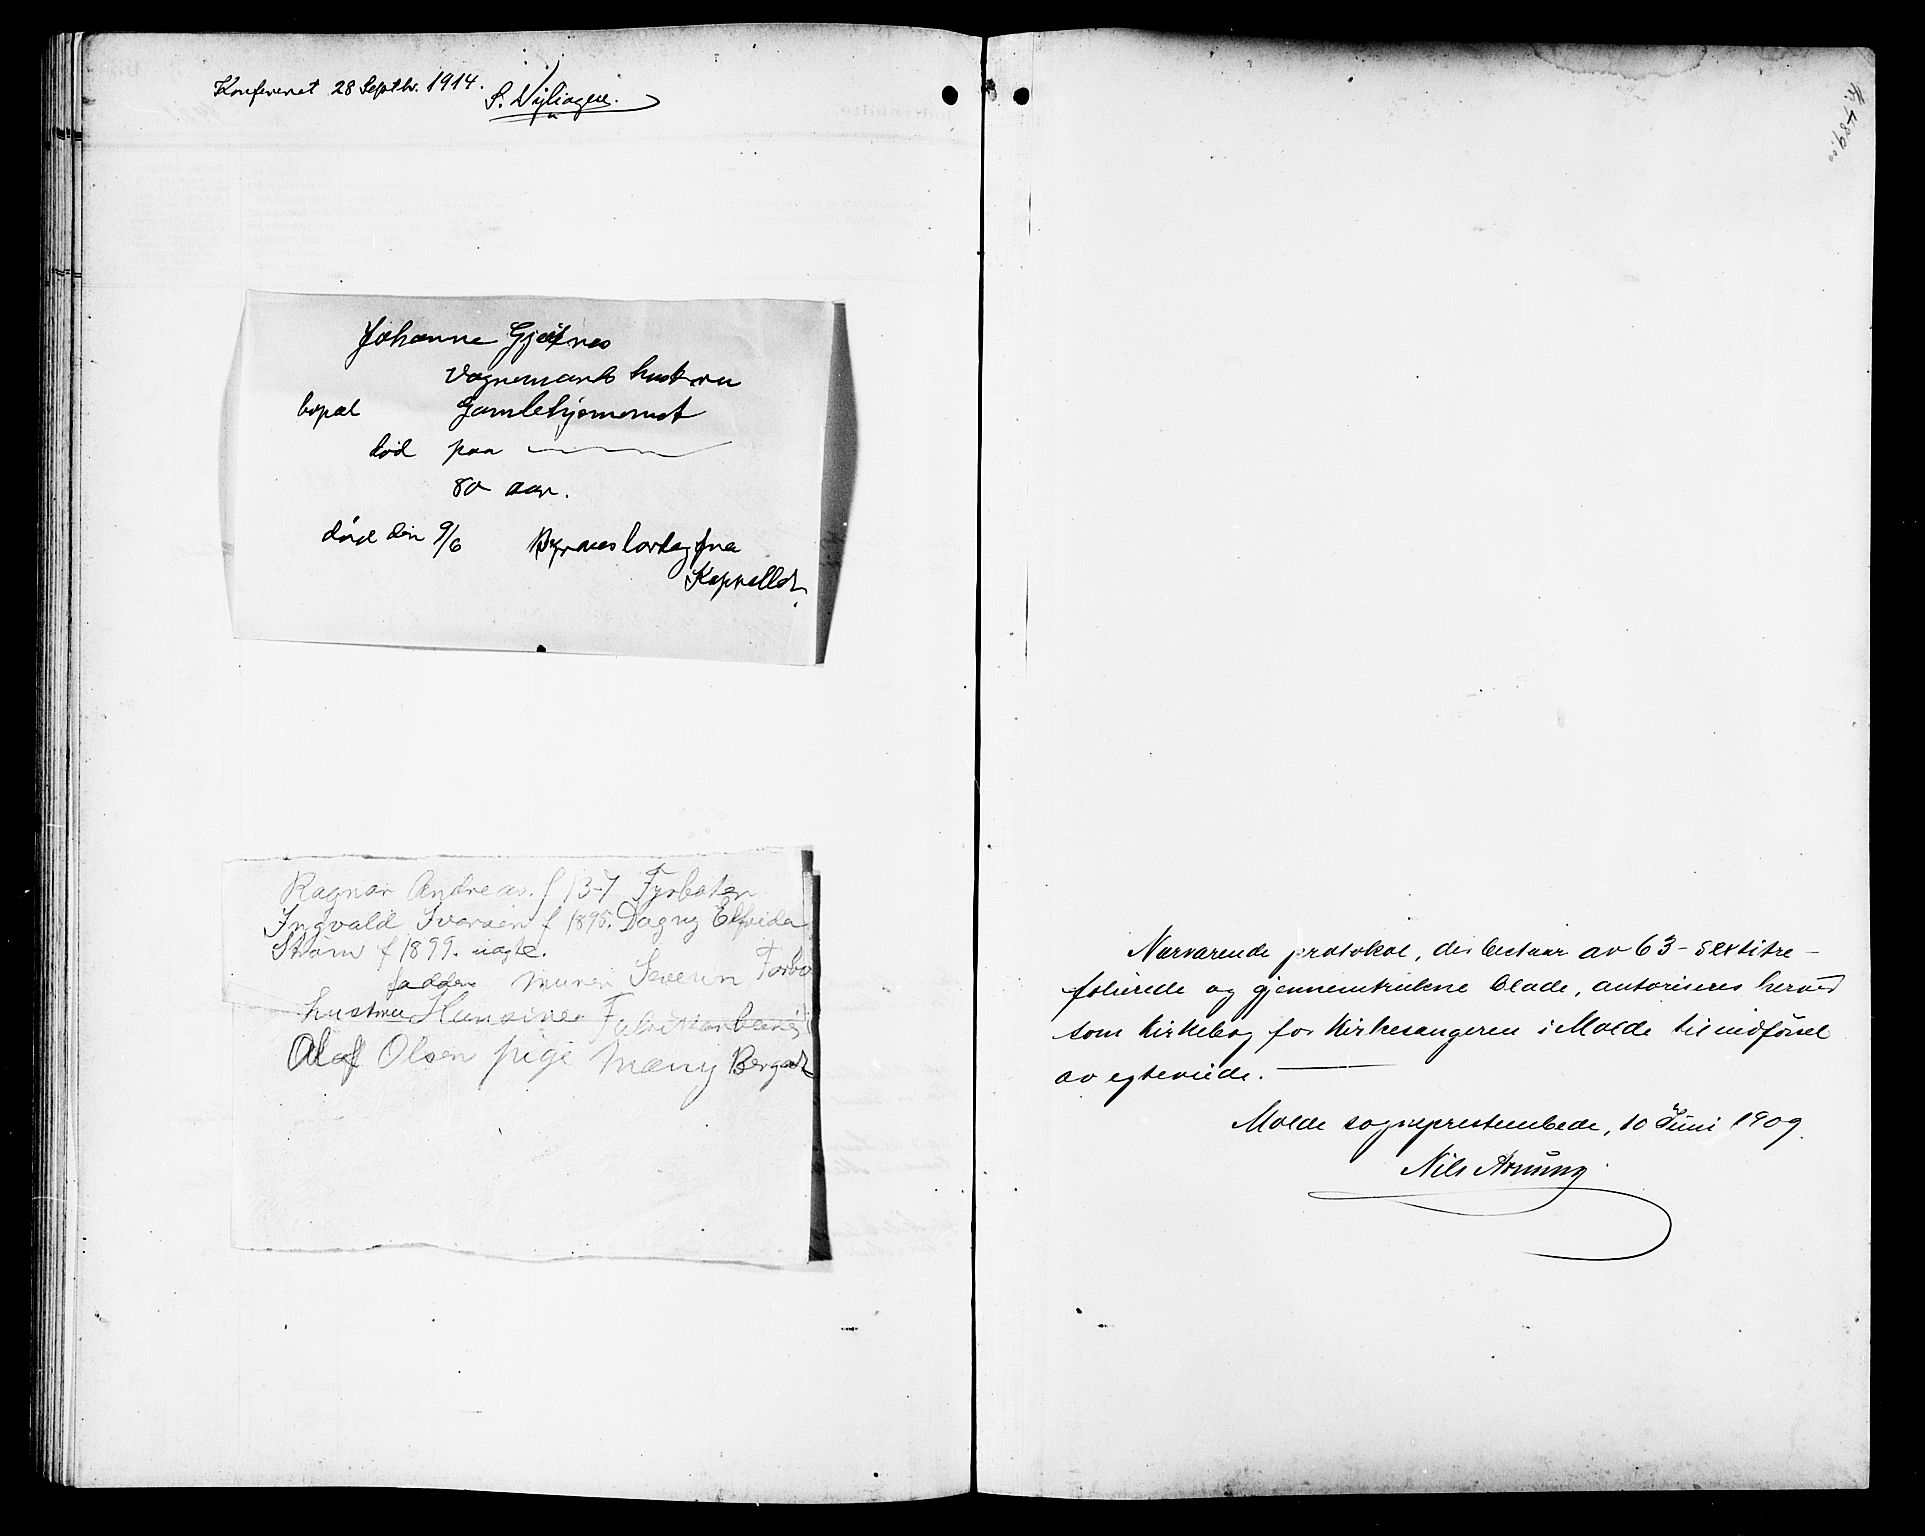 Konfereret 28 Septbr. 1914.
Johanne Gjelnes
Vognemands hustru
bopæl Gamlehjemmet
död paa
80 aar.
död den 9/6 Byraaes lordag fra
Kapellet.
Ragnar Andreas. f 13-7 Fyrböter
Ingvald Iversen f 1895. Dagny Elfrida
Ström f 1899. uegte.
faddere murer Severin
hustru Hansine Fabrikarbeider
Olaf Olsen pige Maeny
Nærværende protokol, der bestaar av 63 - sextitre -
folierede og gjennemtrukne blade, autoriseres herved
som kirkebog for kirkesangeren i Molde til indförsel
av egteviede.
Molde sogneprestembede, 10 Juni 1909.